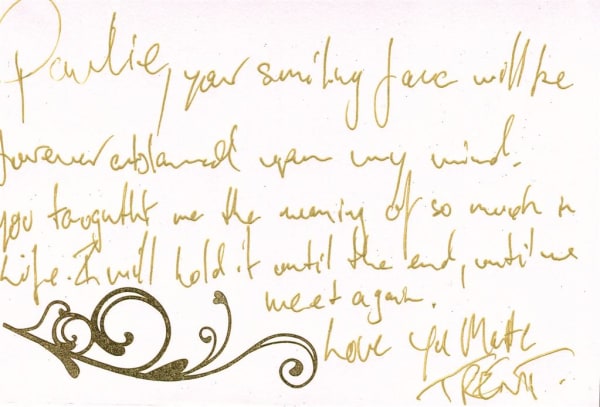 Paulie, your smiling face will be
forever emblazened upon my mind.
you taughtht me the meaning of so much in
Life. I will hold it until the end, until we
meet again.
Love Ya Matte
TRENT.